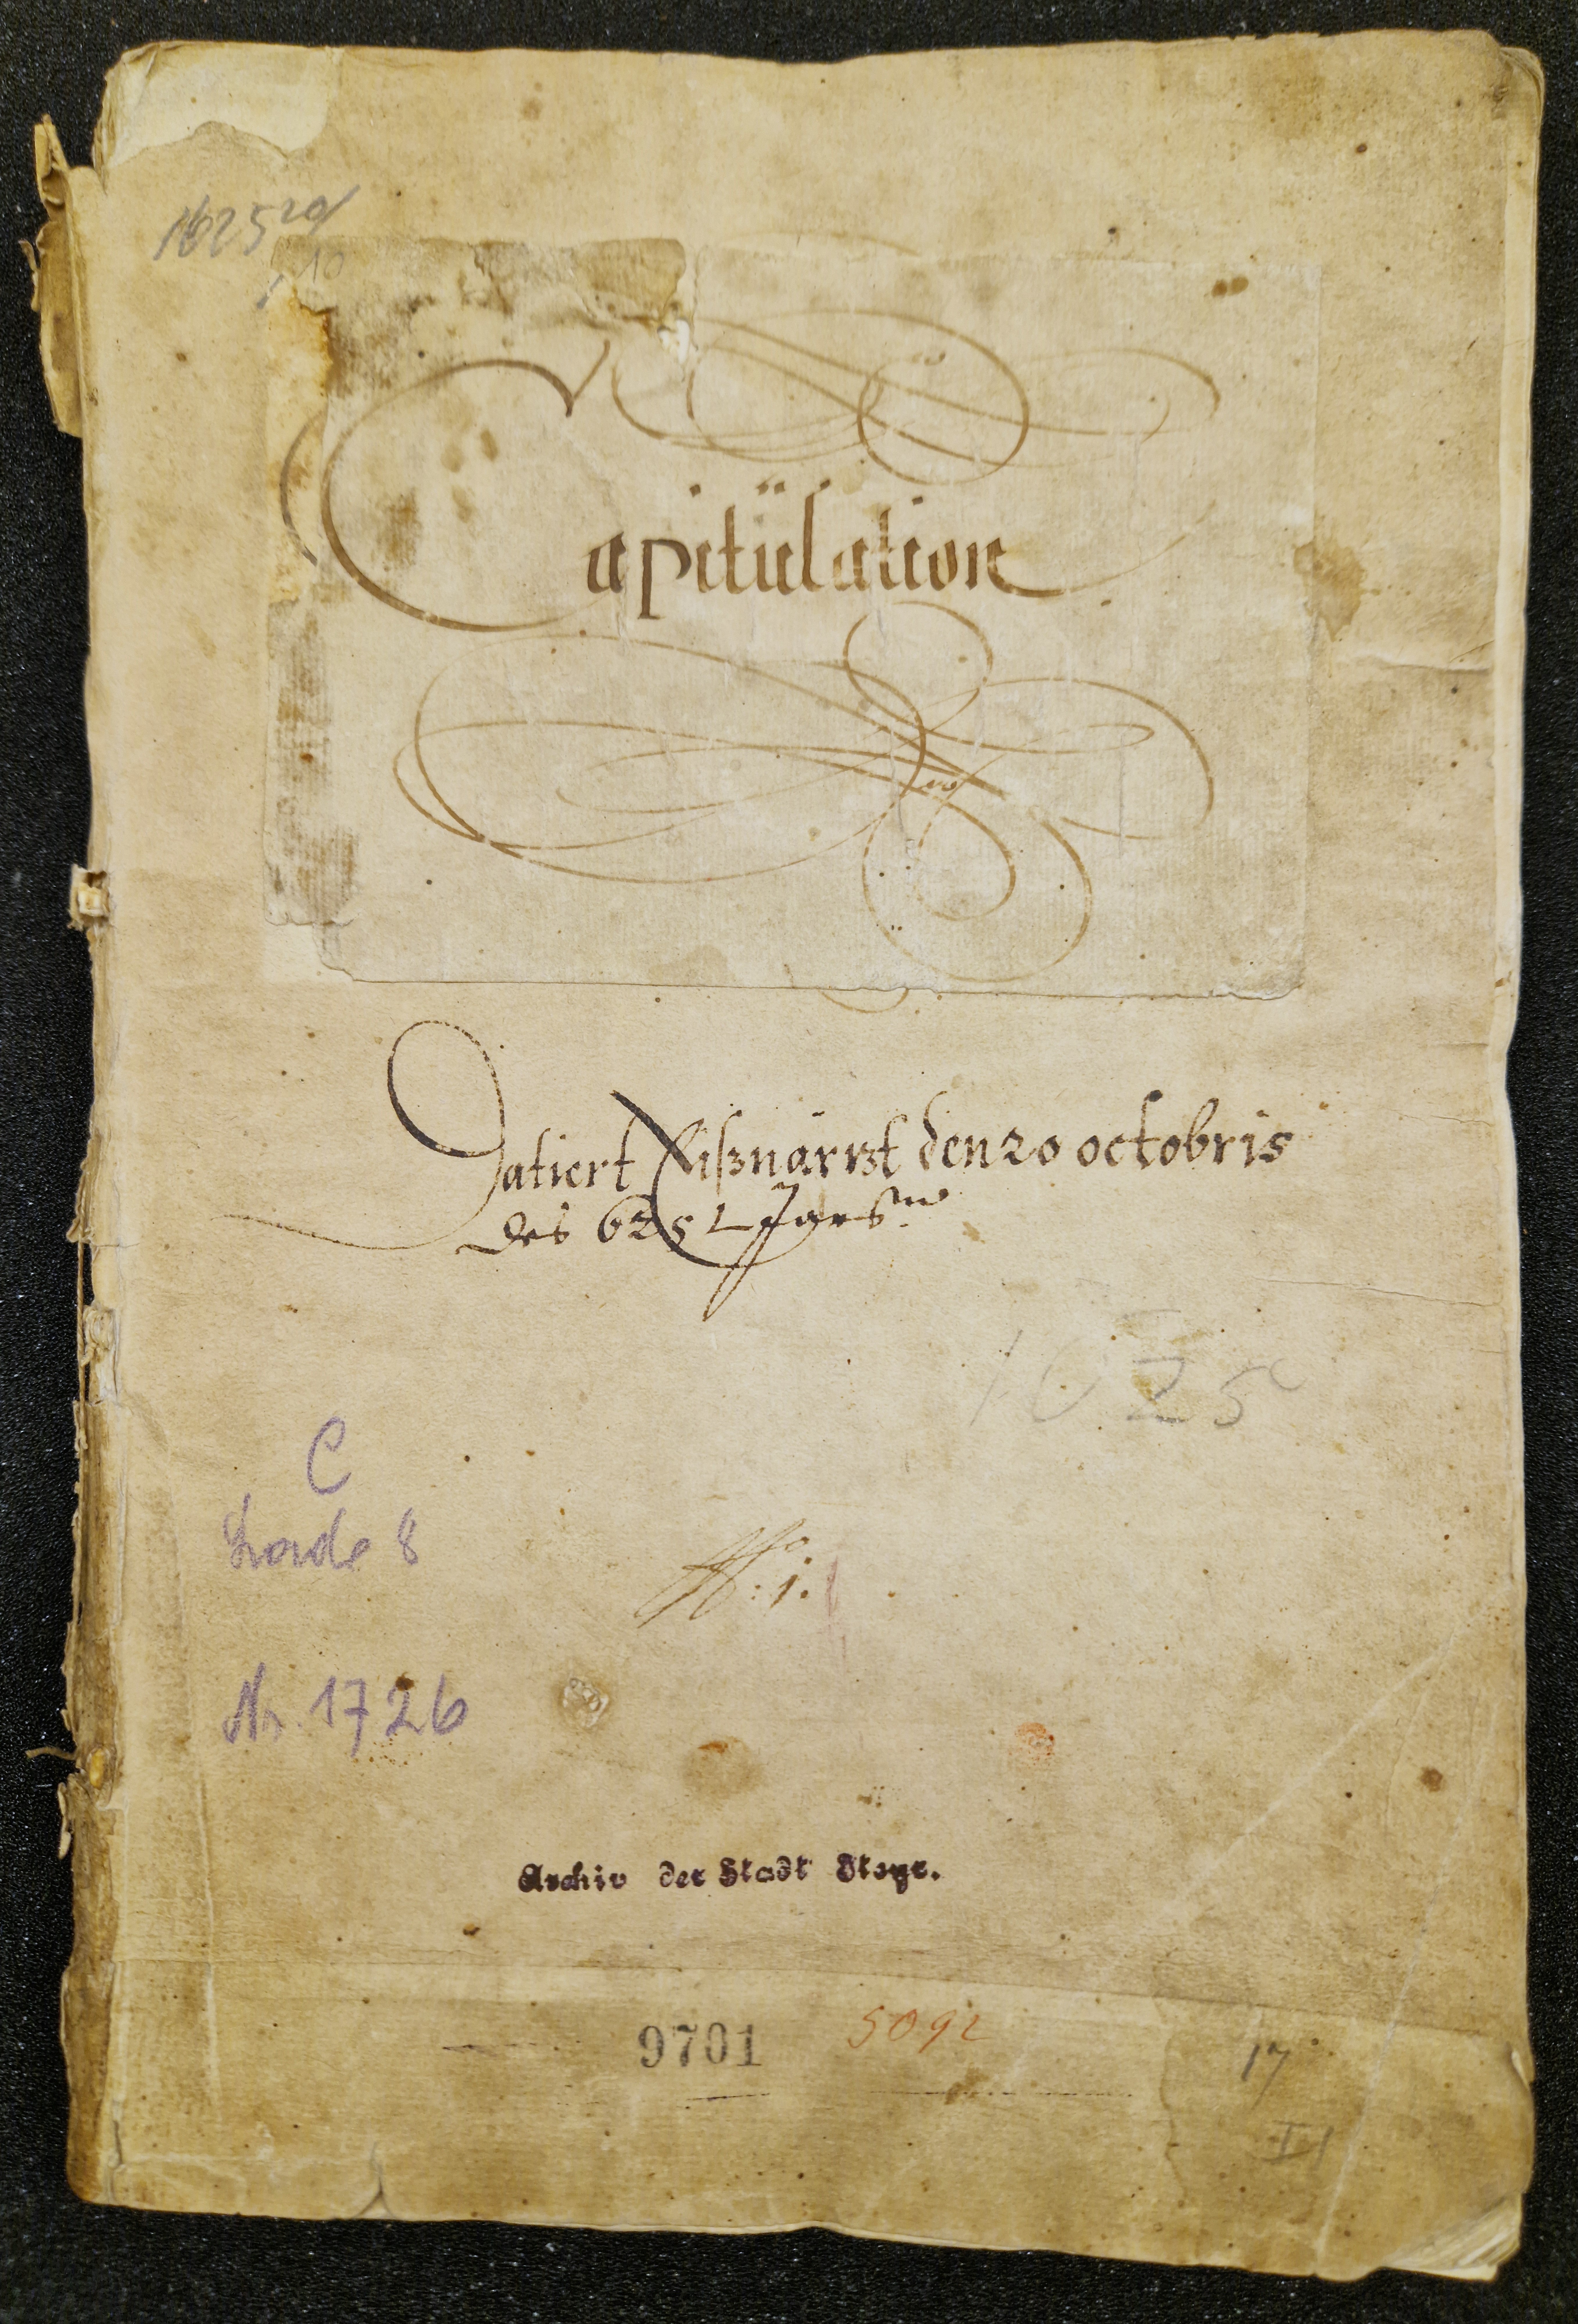 1625 20/
10
Capitülation
Datiert Eißnärzt den 20 octobris
des 625 Jars
1625
C
Lade 8
No: 1.
Nr. 1726
Archiv der Stadt Steyr.
9701 5092
17
II